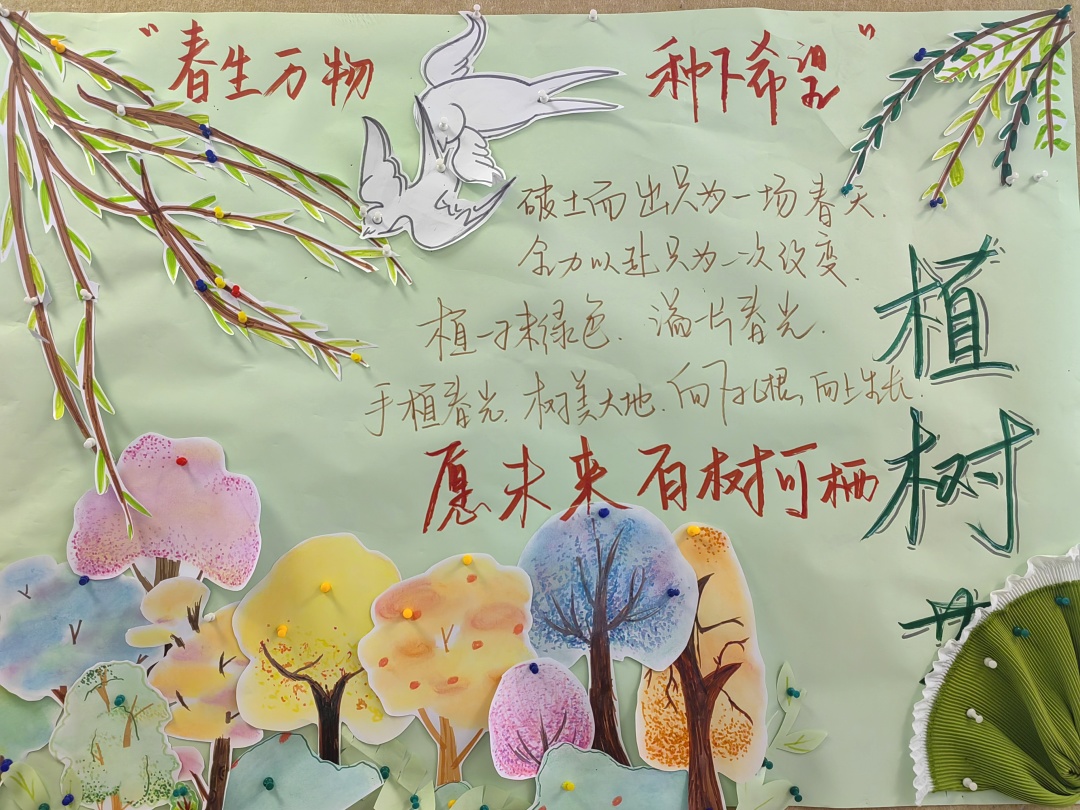 "春生万物 种下希望"
破土而出只为一场春天.
全力以赴只为一次改变.
植一抹绿色. 满一片春光.
手植春光. 树美大地. 向下扎根, 向上生长.
愿未来百树可栖
植
树